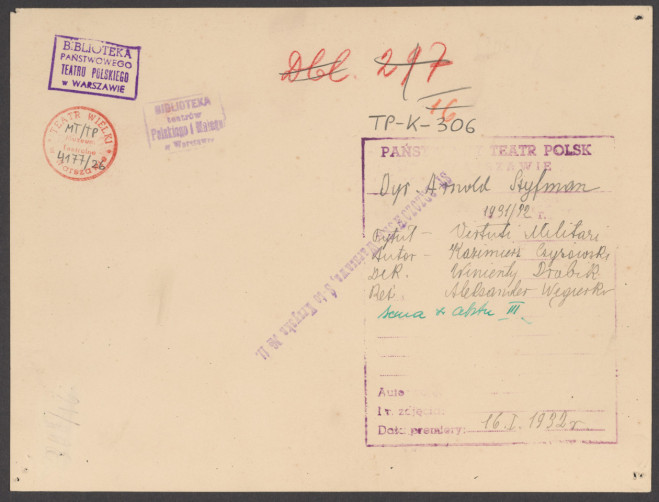 BIBLIOTEKA
PAŃSTWOWEGO
TEATRU POLSKIEGO
w WARSZAWIE
TEATR WIELKI
MT/TP
4177/26
BIBLIOTEKA
teatrów
Polskiego i Małego
w Warszawie
Dbl. 217
16
TP-K-306
PAŃS TEATR POLSK
Dyr Arnold Szyfman
1931/32 r.
Tytuł - Virtuti Militari
Autor - Kazimierz Czyżowski
Dek. Wincenty Drabik
Reż. Aleksander Węgierko
scena z aktu III
Auto
I r. zdjęcia
Data premiery: 16.I.1932 r